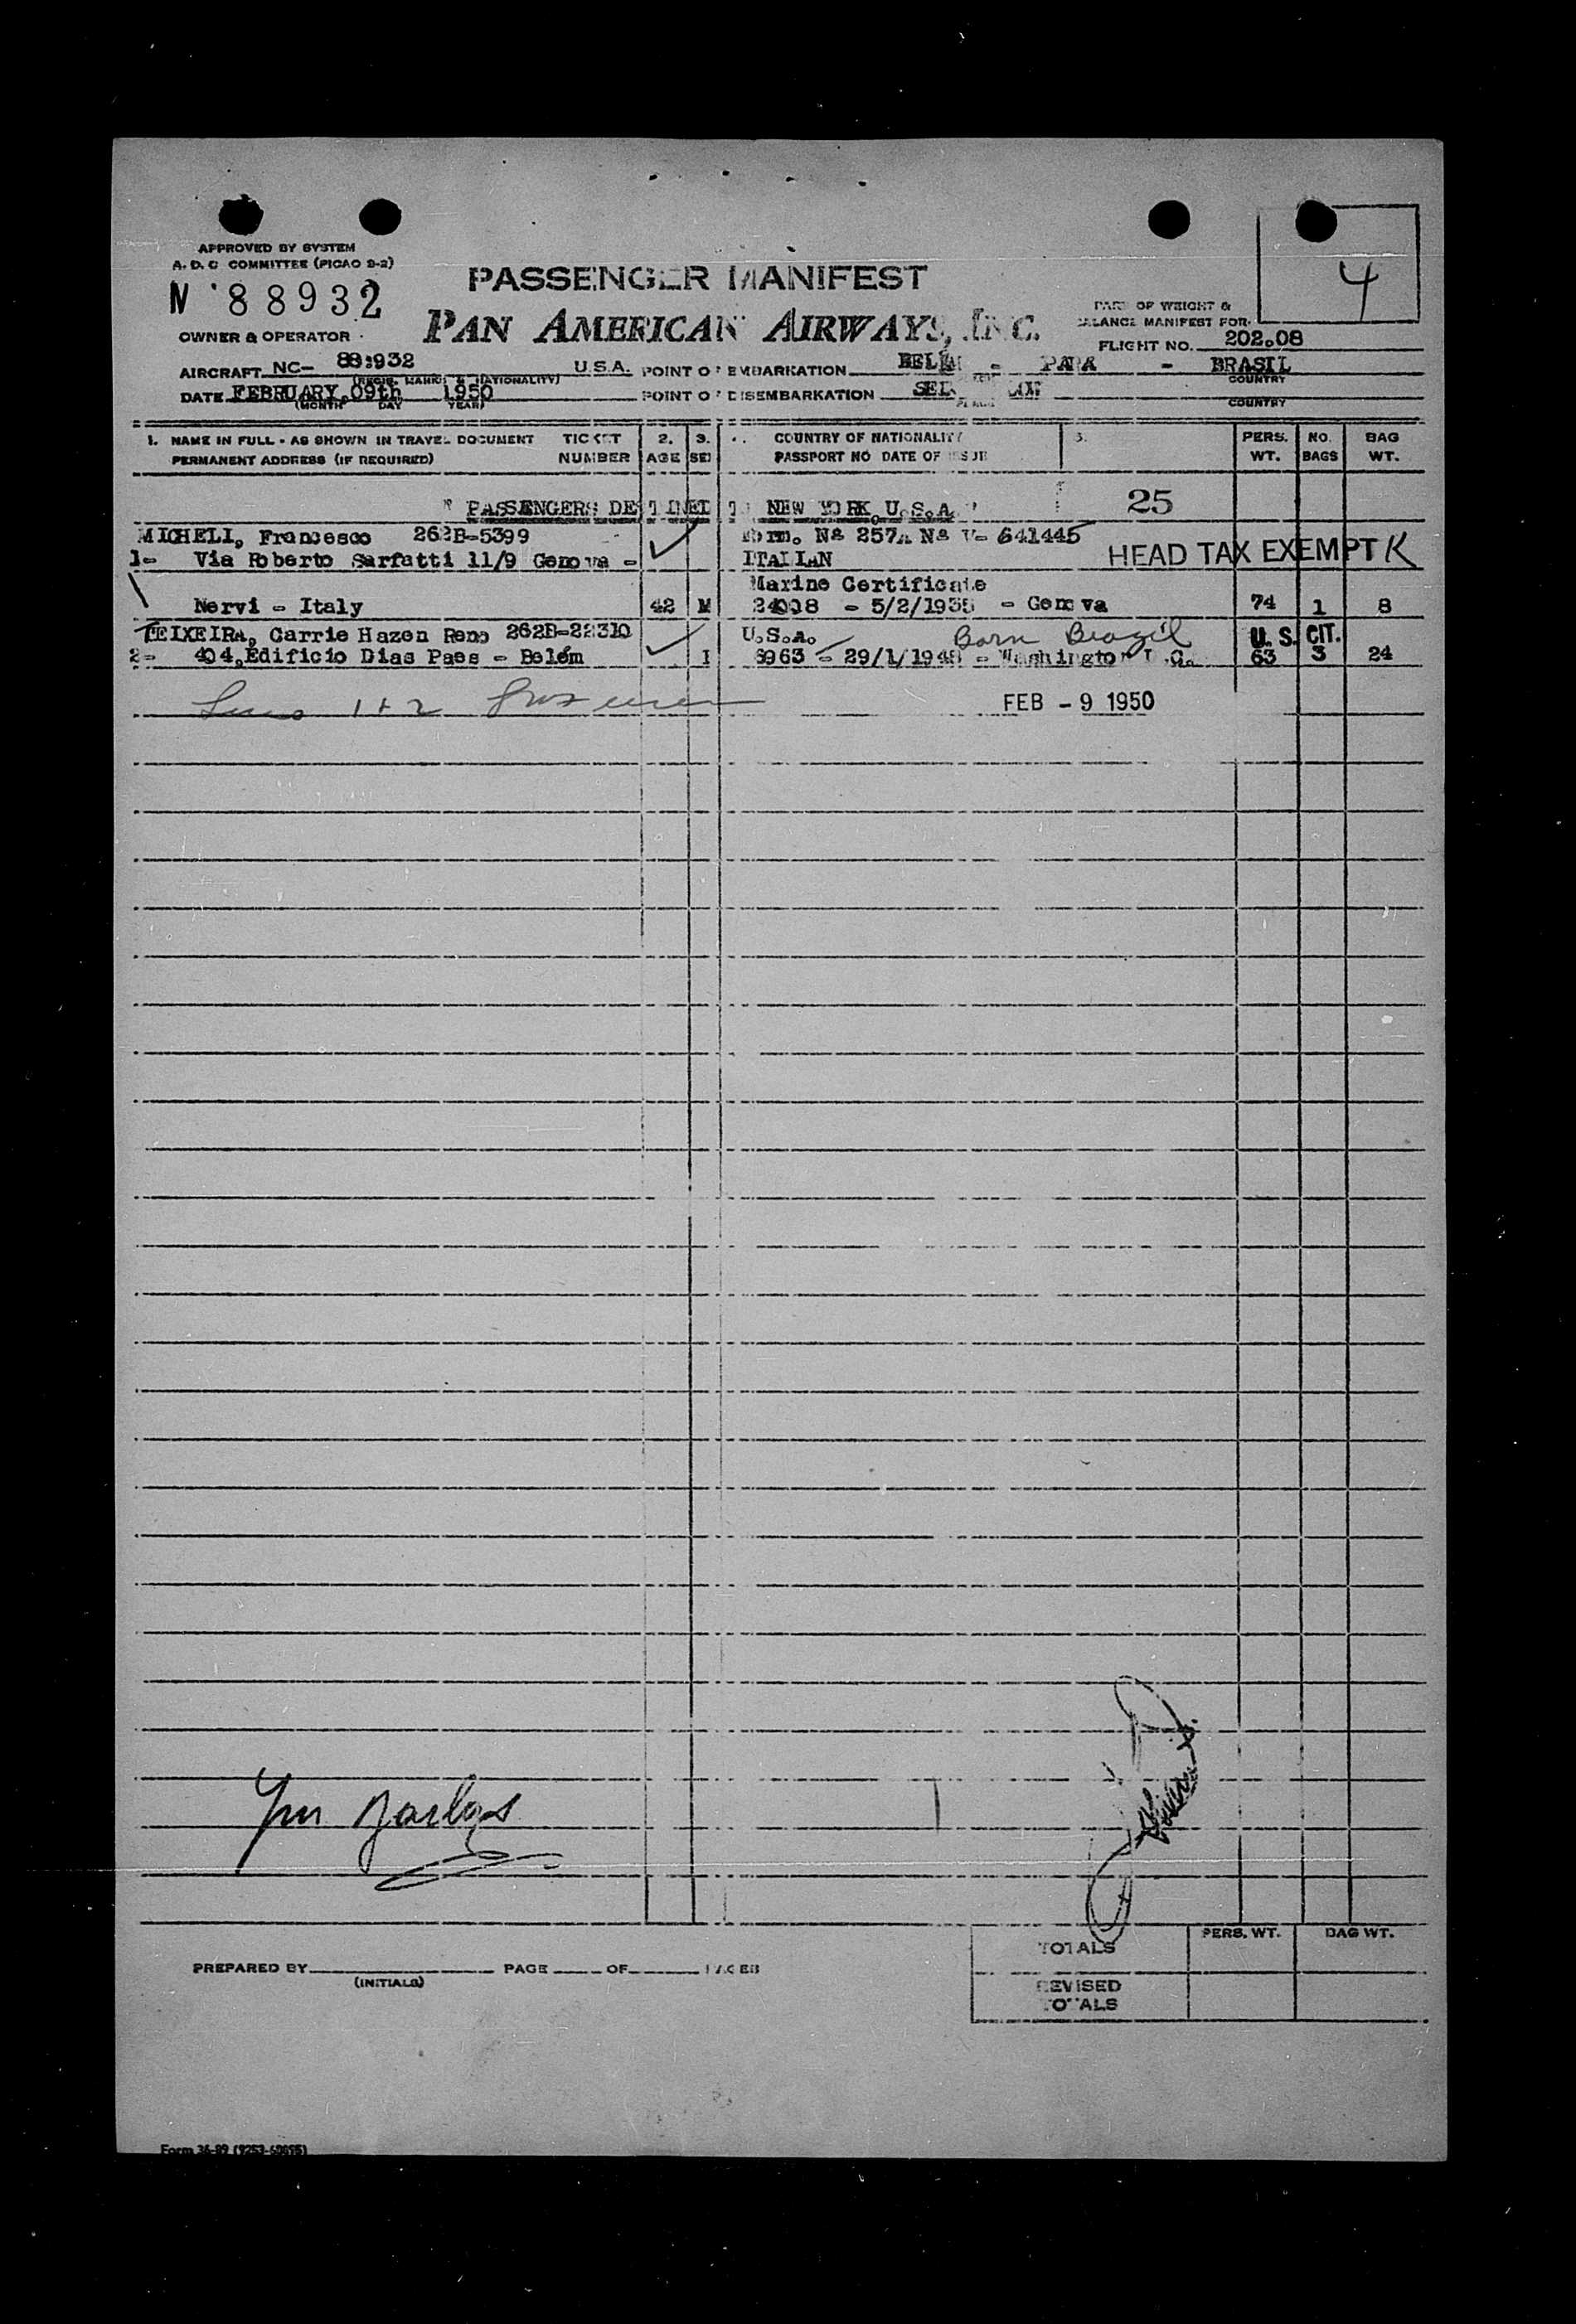 APPROVED BY SYSTEM
A. D. C COMMITTEE (PICAO 9-2)
N 88932
PASSENGER MANIFEST
4
PART OF WEIGHT &
BALANCE MANIFEST FOR
OWNER & OPERATOR
PAN AMERICAN AIRWAYS, INC.
FLIGHT NO. 202.08
AIRCRAFT NC- 88932 U.S.A. POINT OF EMBARKATION BELEM - PARA - BRASIL
(REGIS. MARKS & NATIONALITY) COUNTRY
DATE FEBRUARY, 09th 1950 POINT OF DISEMBARKATION SEE BELOW
(MONTH DAY YEAR) PLACE COUNTRY
1. NAME IN FULL - AS SHOWN IN TRAVEL DOCUMENT TICKET 2. 3. COUNTRY OF NATIONALITY 5. PERS. NO. BAG
PERMANENT ADDRESS (IF REQUIRED) NUMBER AGE SEX PASSPORT NO DATE OF ISSUE WT. BAGS WT.
" PASSENGERS DESTINED TO NEW YORK, U.S.A. " 25
MICHELI, Francesco 262B-5399 Form. Nº 257A Nº V- 641445
1- Via Roberto Sarfatti 11/9 Genova - ITALIAN HEAD TAX EXEMPT K
Marine Certificate
Nervi - Italy 42 M 24008 - 5/2/1938 - Genova 74 1 8
TEIXEIRA, Carrie Hazen Reno 262B-22310 U.S.A. Born Brazil U. S. CIT.
2- 404, Edificio Dias Paes - Belém 8963 - 29/1/1948 - Washington D.C. 63 3 24
1 + 2 FEB - 9 1950
PREPARED BY PAGE OF PAGES
(INITIALS)
TOTALS PERS. WT. BAG WT.
REVISED
TOTALS
Form 36-89 (9253-60895)